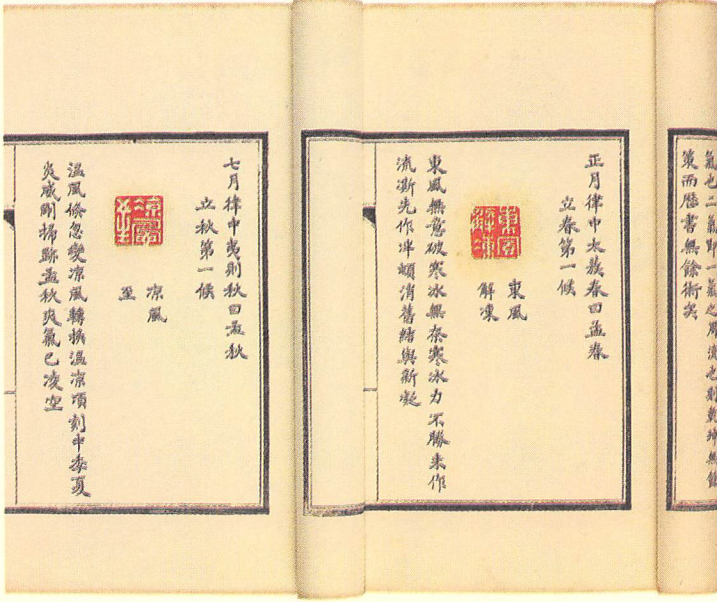 氣也二氣即一氣之周流也則乾坤無餘
策而歷書無餘術矣
正月律中太蔟春曰孟春
立春第一候
東風
解凍
東風
解凍
東風無意破寒冰無奈寒冰力不勝未作
流澌先作泮頓消舊結與新凝
七月律中夷則秋曰孟秋
立秋第一候
涼風
至
涼風
至
溫風倏忽變凉風轉換溫凉頃刻中季夏
炎威剛掃跡孟秋爽氣已凌空